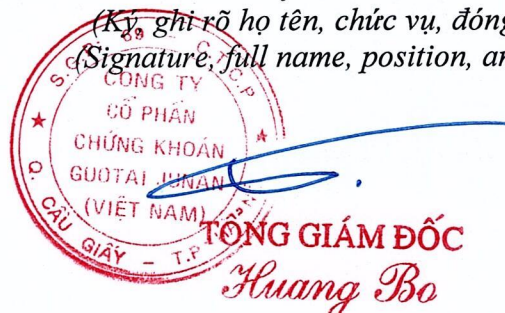 (Ký, ghi rõ họ tên, chức vụ, đóng
(Signature, full name, position, an
C.T.C.P
CÔNG TY
CỔ PHẦN
CHỨNG KHOÁN
GUOTAI JUNAN
(VIỆT NAM)
Q. CẦU GIẤY - T.P
TỔNG GIÁM ĐỐC
Huang Bo